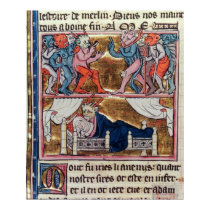 lestoire de merlin . Dieus nos maine
tous a boine fin . A M E
Mout fu iries li anemis . quant
nostre sires ot este en infer
et il en ot iete eue et adam